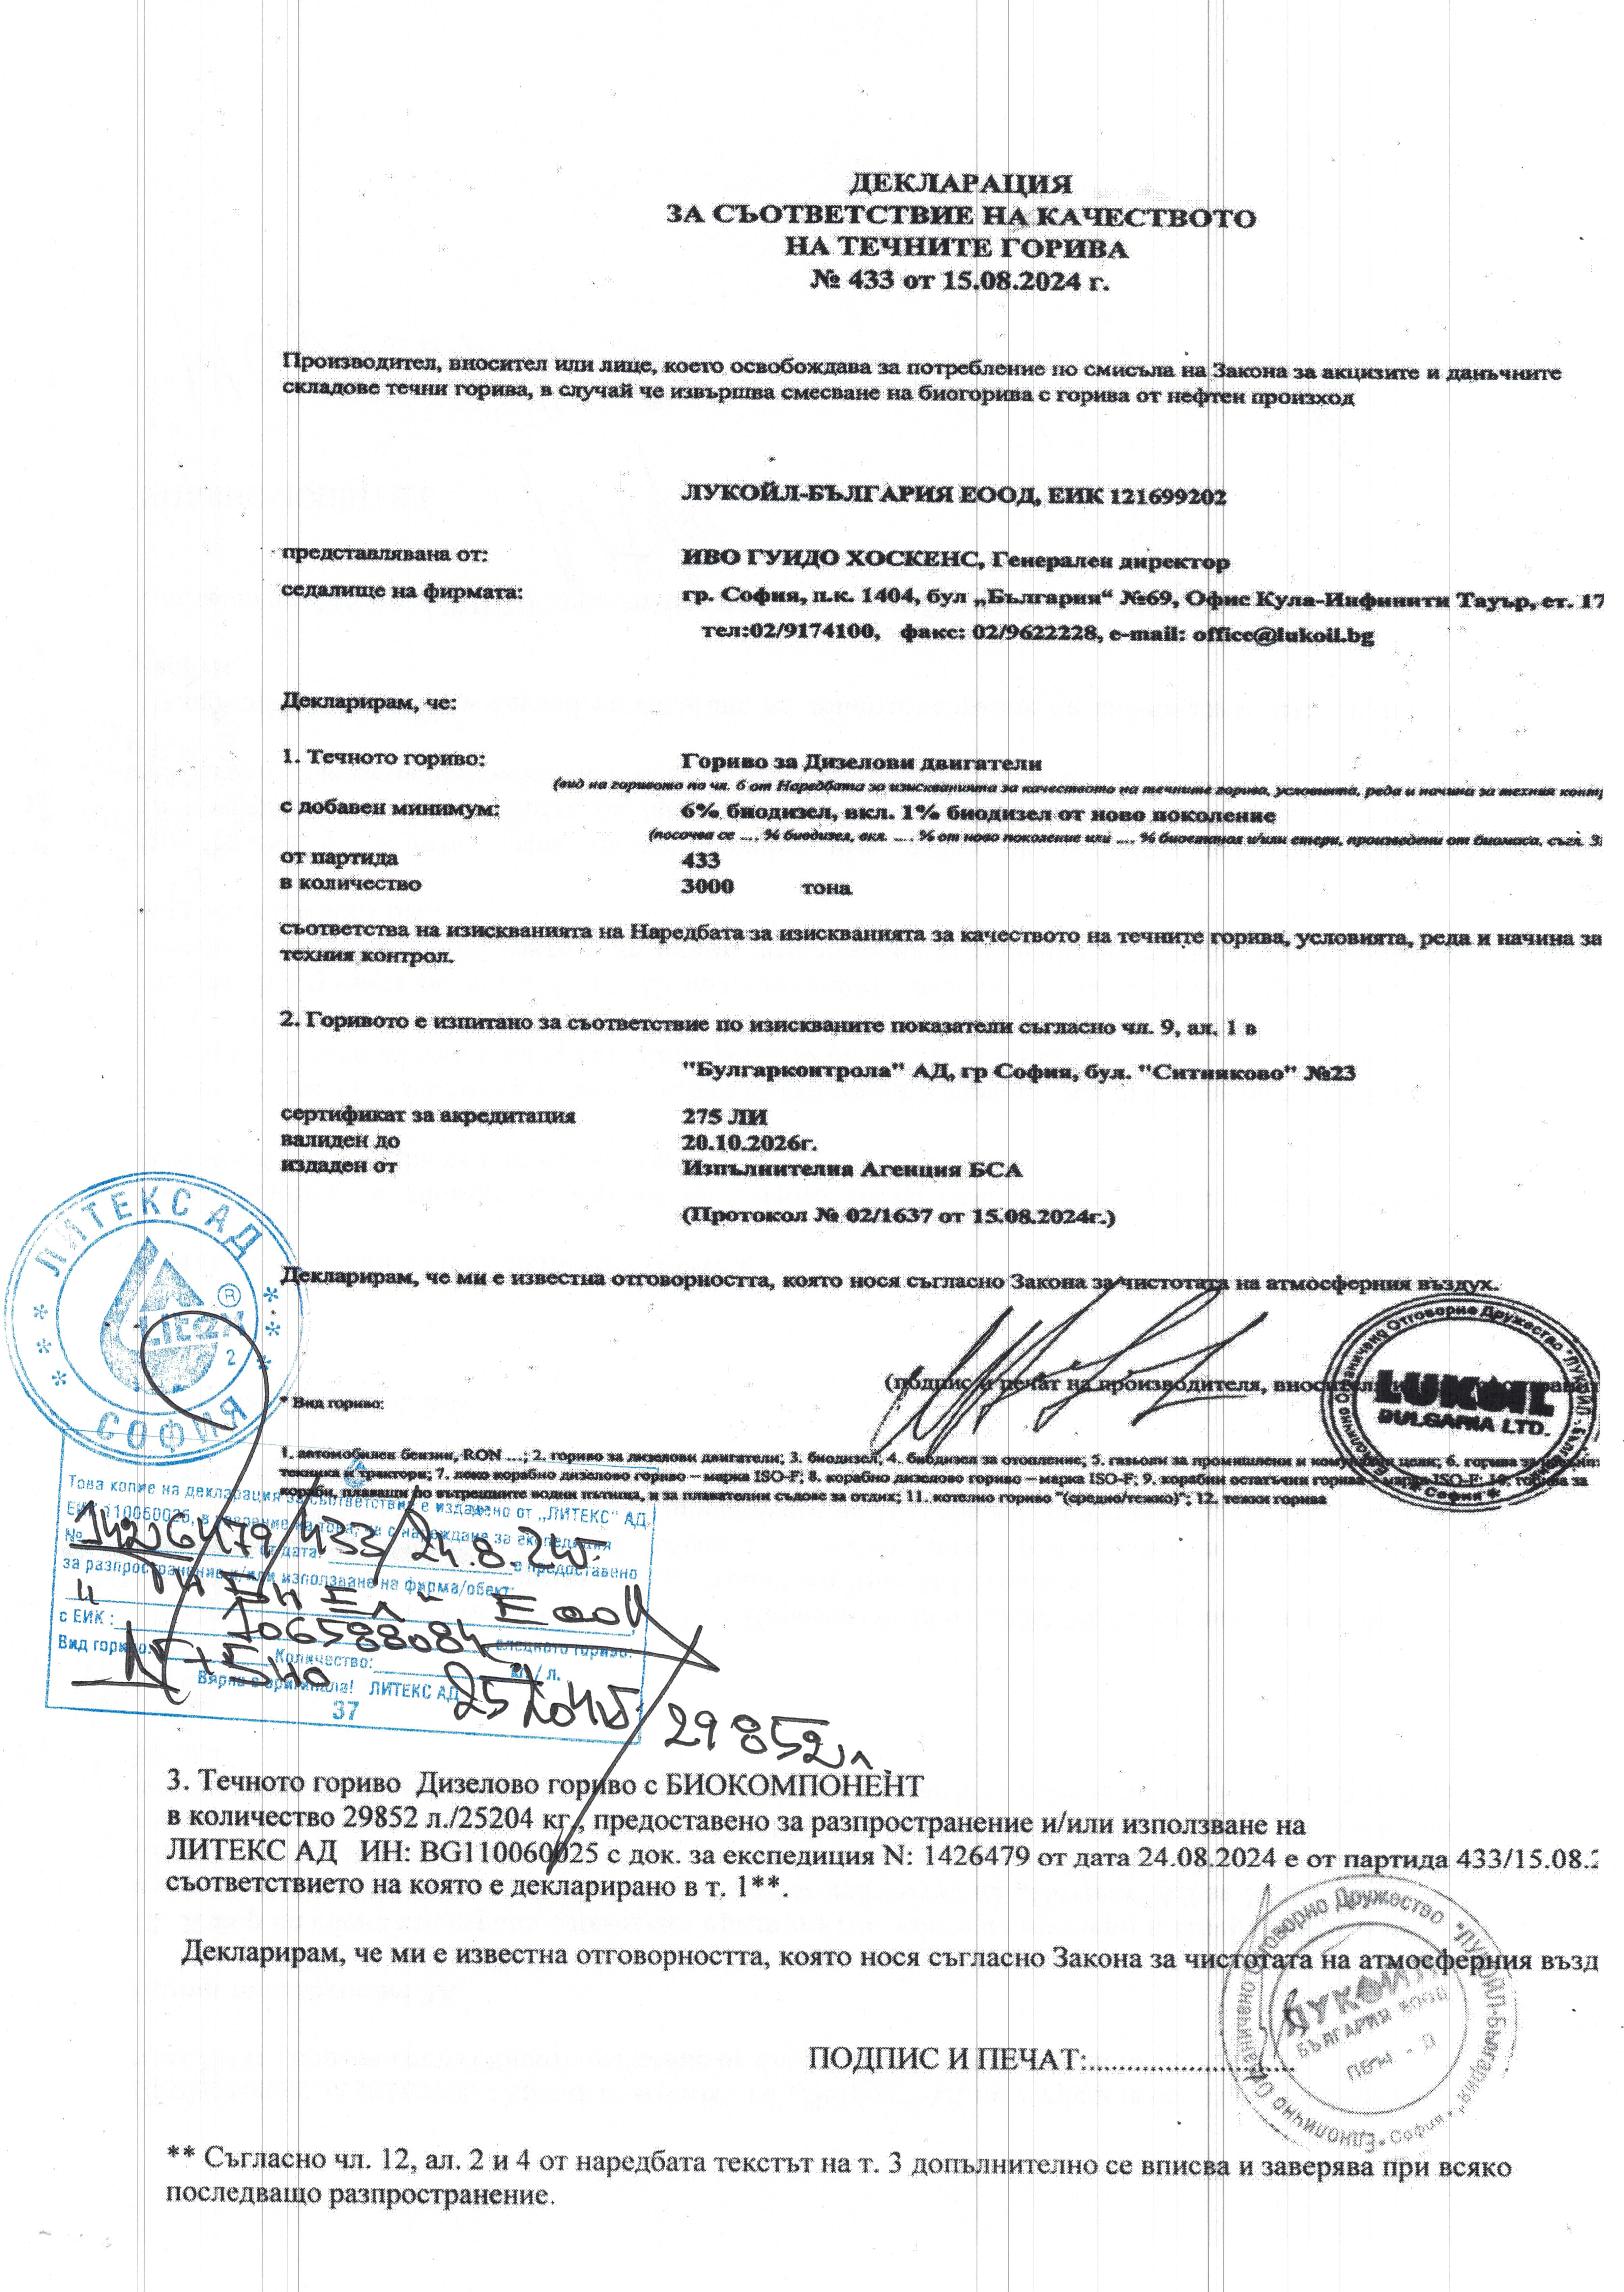 ДЕКЛАРАЦИЯ
ЗА СЪОТВЕТСТВИЕ НА КАЧЕСТВОТО
НА ТЕЧНИТЕ ГОРИВА
№ 433 от 15.08.2024 г.
Производител, вносител или лице, което освобождава за потребление по смисъла на Закона за акцизите и данъчните
складове течни горива, в случай че извършва смесване на биогорива с горива от нефтен произход
ЛУКОЙЛ-БЪЛГАРИЯ ЕООД, ЕИК 121699202
представлявана от: ИВО ГУИДО ХОСКЕНС, Генерален директор
седалище на фирмата: гр. София, п.к. 1404, бул „България“ №69, Офис Кула-Инфинити Тауър, ет. 17
тел:02/9174100, факс: 02/9622228, e-mail: office@lukoil.bg
Декларирам, че:
1. Течното гориво: Гориво за Дизелови двигатели
(вид на горивото по чл. 6 от Наредбата за изискванията за качеството на течните горива, условията, реда и начина за техния контр
с добавен минимум: 6% биодизел, вкл. 1% биодизел от ново поколение
(посочва се ..., % биодизел, вкл. .... % от ново поколение или .... % биоетанол и/или етери, произведени от биомаса, съгл. З
от партида 433
в количество 3000 тона
съответства на изискванията на Наредбата за изискванията за качеството на течните горива, условията, реда и начина за
техния контрол.
2. Горивото е изпитано за съответствие по изискваните показатели съгласно чл. 9, ал. 1 в
"Булгарконтрола" АД, гр София, бул. "Ситняково" №23
сертификат за акредитация 275 ЛИ
валиден до 20.10.2026г.
издаден от Изпълнителна Агенция БСА
(Протокол № 02/1637 от 15.08.2024г.)
Декларирам, че ми е известна отговорността, която нося съгласно Закона за чистотата на атмосферния въздух.
ЛИТЕКС АД
LITEX ®
2
СОФИЯ
(подпис и печат на производителя,
Еднолично Ограничено Отговорно Дружество "ЛУКОЙЛ-България"
LUKOIL
BULGARIA LTD.
* София *
* Вид гориво:
1. автомобилен бензин, RON ...; 2. гориво за дизелови двигатели; 3. биодизел; 4. биодизел за отопление; 5. газьоли за промишлени и комунални цели; 6. горива за
техника и трактори; 7. леко корабно дизелово гориво – марка ISO-F; 8. корабно дизелово гориво – марка ISO-F; 9. корабни остатъчни горива – марка ISO-F; 10. горива за
кораби, плаващи по вътрешните водни пътища, и за плавателни съдове за отдих; 11. котелно гориво "(средно/тежко)"; 12. тежки горива
Това копие на декларация за съответствие е издадено от „ЛИТЕКС“ АД,
ЕИК 110060025, в уверение на това, че с нареждане за експедиция
№ 1426479/433/24.8.24г. от дата: е предоставено
за разпространение и/или използване на фирма/обект:
ЕООД
с ЕИК : 106588084 следното гориво:
Вид гориво: Количество: кг. / л.
Вярно с оригинала! ЛИТЕКС АД
37
25204 / 29852л.
3. Течното гориво Дизелово гориво с БИОКОМПОНЕНТ
в количество 29852 л./25204 кг., предоставено за разпространение и/или използване на
ЛИТЕКС АД ИН: BG110060025 с док. за експедиция N: 1426479 от дата 24.08.2024 е от партида 433/15.08.2
съответствието на която е декларирано в т. 1**.
Декларирам, че ми е известна отговорността, която нося съгласно Закона за чистотата на атмосферния възд
ПОДПИС И ПЕЧАТ:...........................
Еднолично Ограничено Отговорно Дружество "ЛУКОЙЛ-България"
ЛУКОЙЛ
БЪЛГАРИЯ ЕООД
София
** Съгласно чл. 12, ал. 2 и 4 от наредбата текстът на т. 3 допълнително се вписва и заверява при всяко
последващо разпространение.